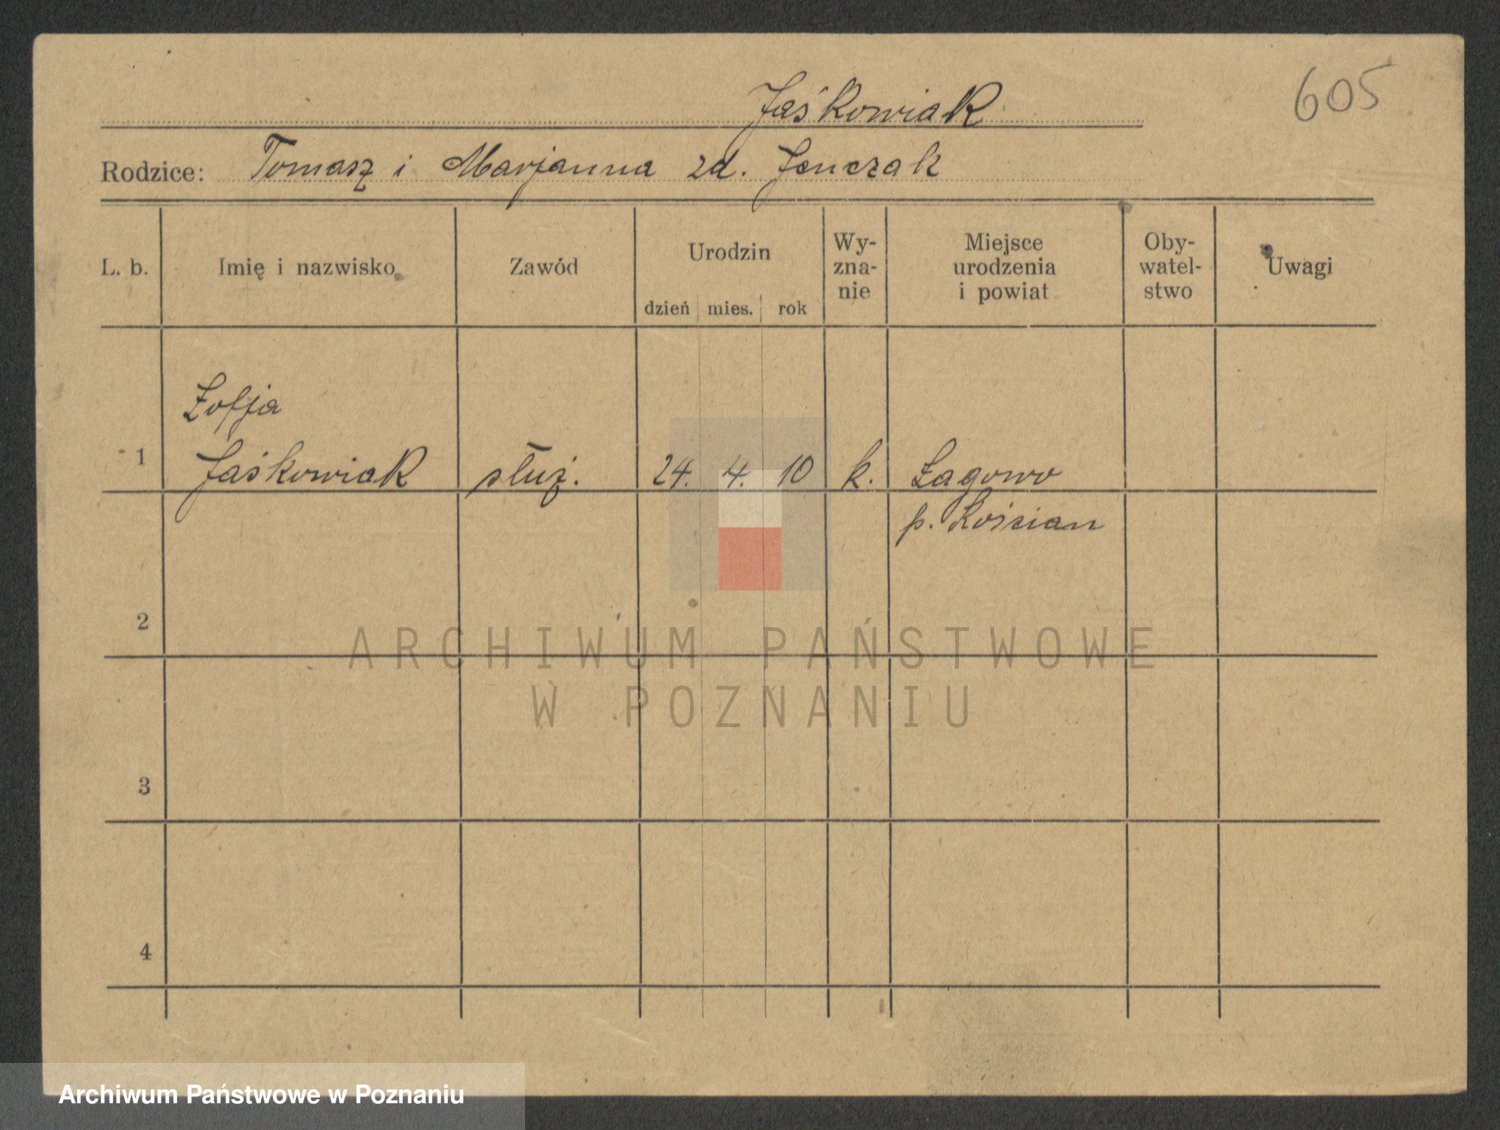 605
Jaśkowiak
Rodzice: Tomasz i Marjanna zd. Jenczak
L. b. Imię i nazwisko Zawód Urodzin dzień mies. rok Wy-zna-nie Miejsce urodzenia i powiat Oby-watel-stwo Uwagi
Zofja
1 Jaśkowiak służ. 24. 4. 10 k. Łagowo
p. Kościan
2
ARCHIWUM PAŃSTWOWE
W POZNANIU
3
4
Archiwum Państwowe w Poznaniu